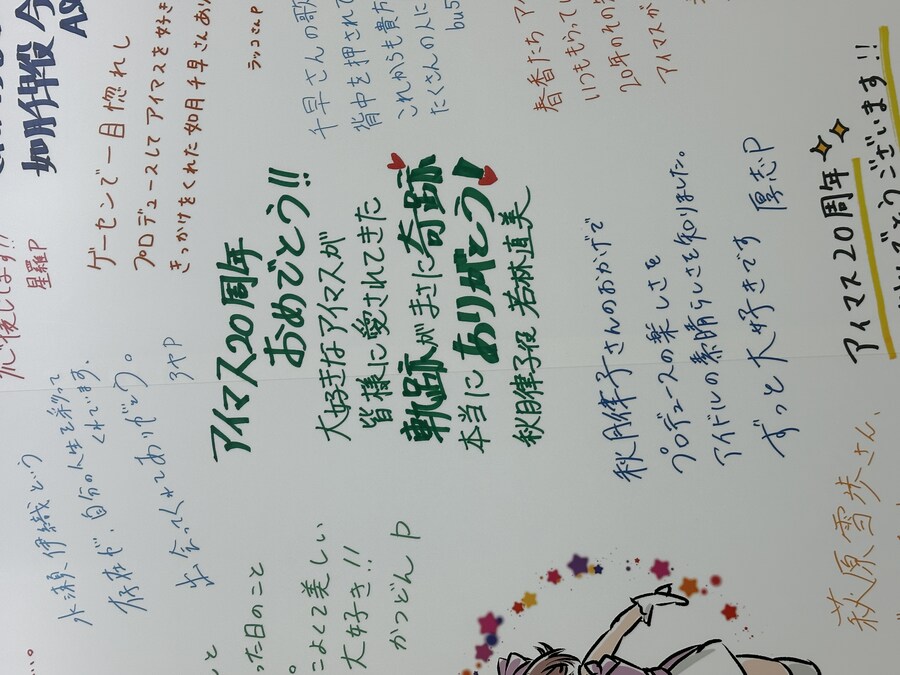 如月千早役 今
ゲーセンで一目惚れし
プロデュースしてアイマスを好き
きっかけをくれた如月千早さんあり
ラッコさんP
千早さんの歌
背中を押されて
これからも貴方
たくさんの人に
bu5
春香たち アイ
いつももらってい
20年のその
アイマスが
応援してます!!
星羅P
アイマス20周年
おめでとう!!
大好きなアイマスが
皆様に愛されてきた
軌跡がまさに奇跡
本当にありがとう
秋月律子役 若林直美
秋月律子さんのおかげで
プロデュースの楽しさを
アイドルの素晴らしさを知りました。
ずっと大好きです 厚志P
アイマス20周年
おめでとうございます!!
水瀬伊織という
存在が、自分の人生を彩って
くれています。
出会ってくれてありがとう。
った日のこと
こよくて美しい
大好き!!
かつどんP
萩原雪歩さん、